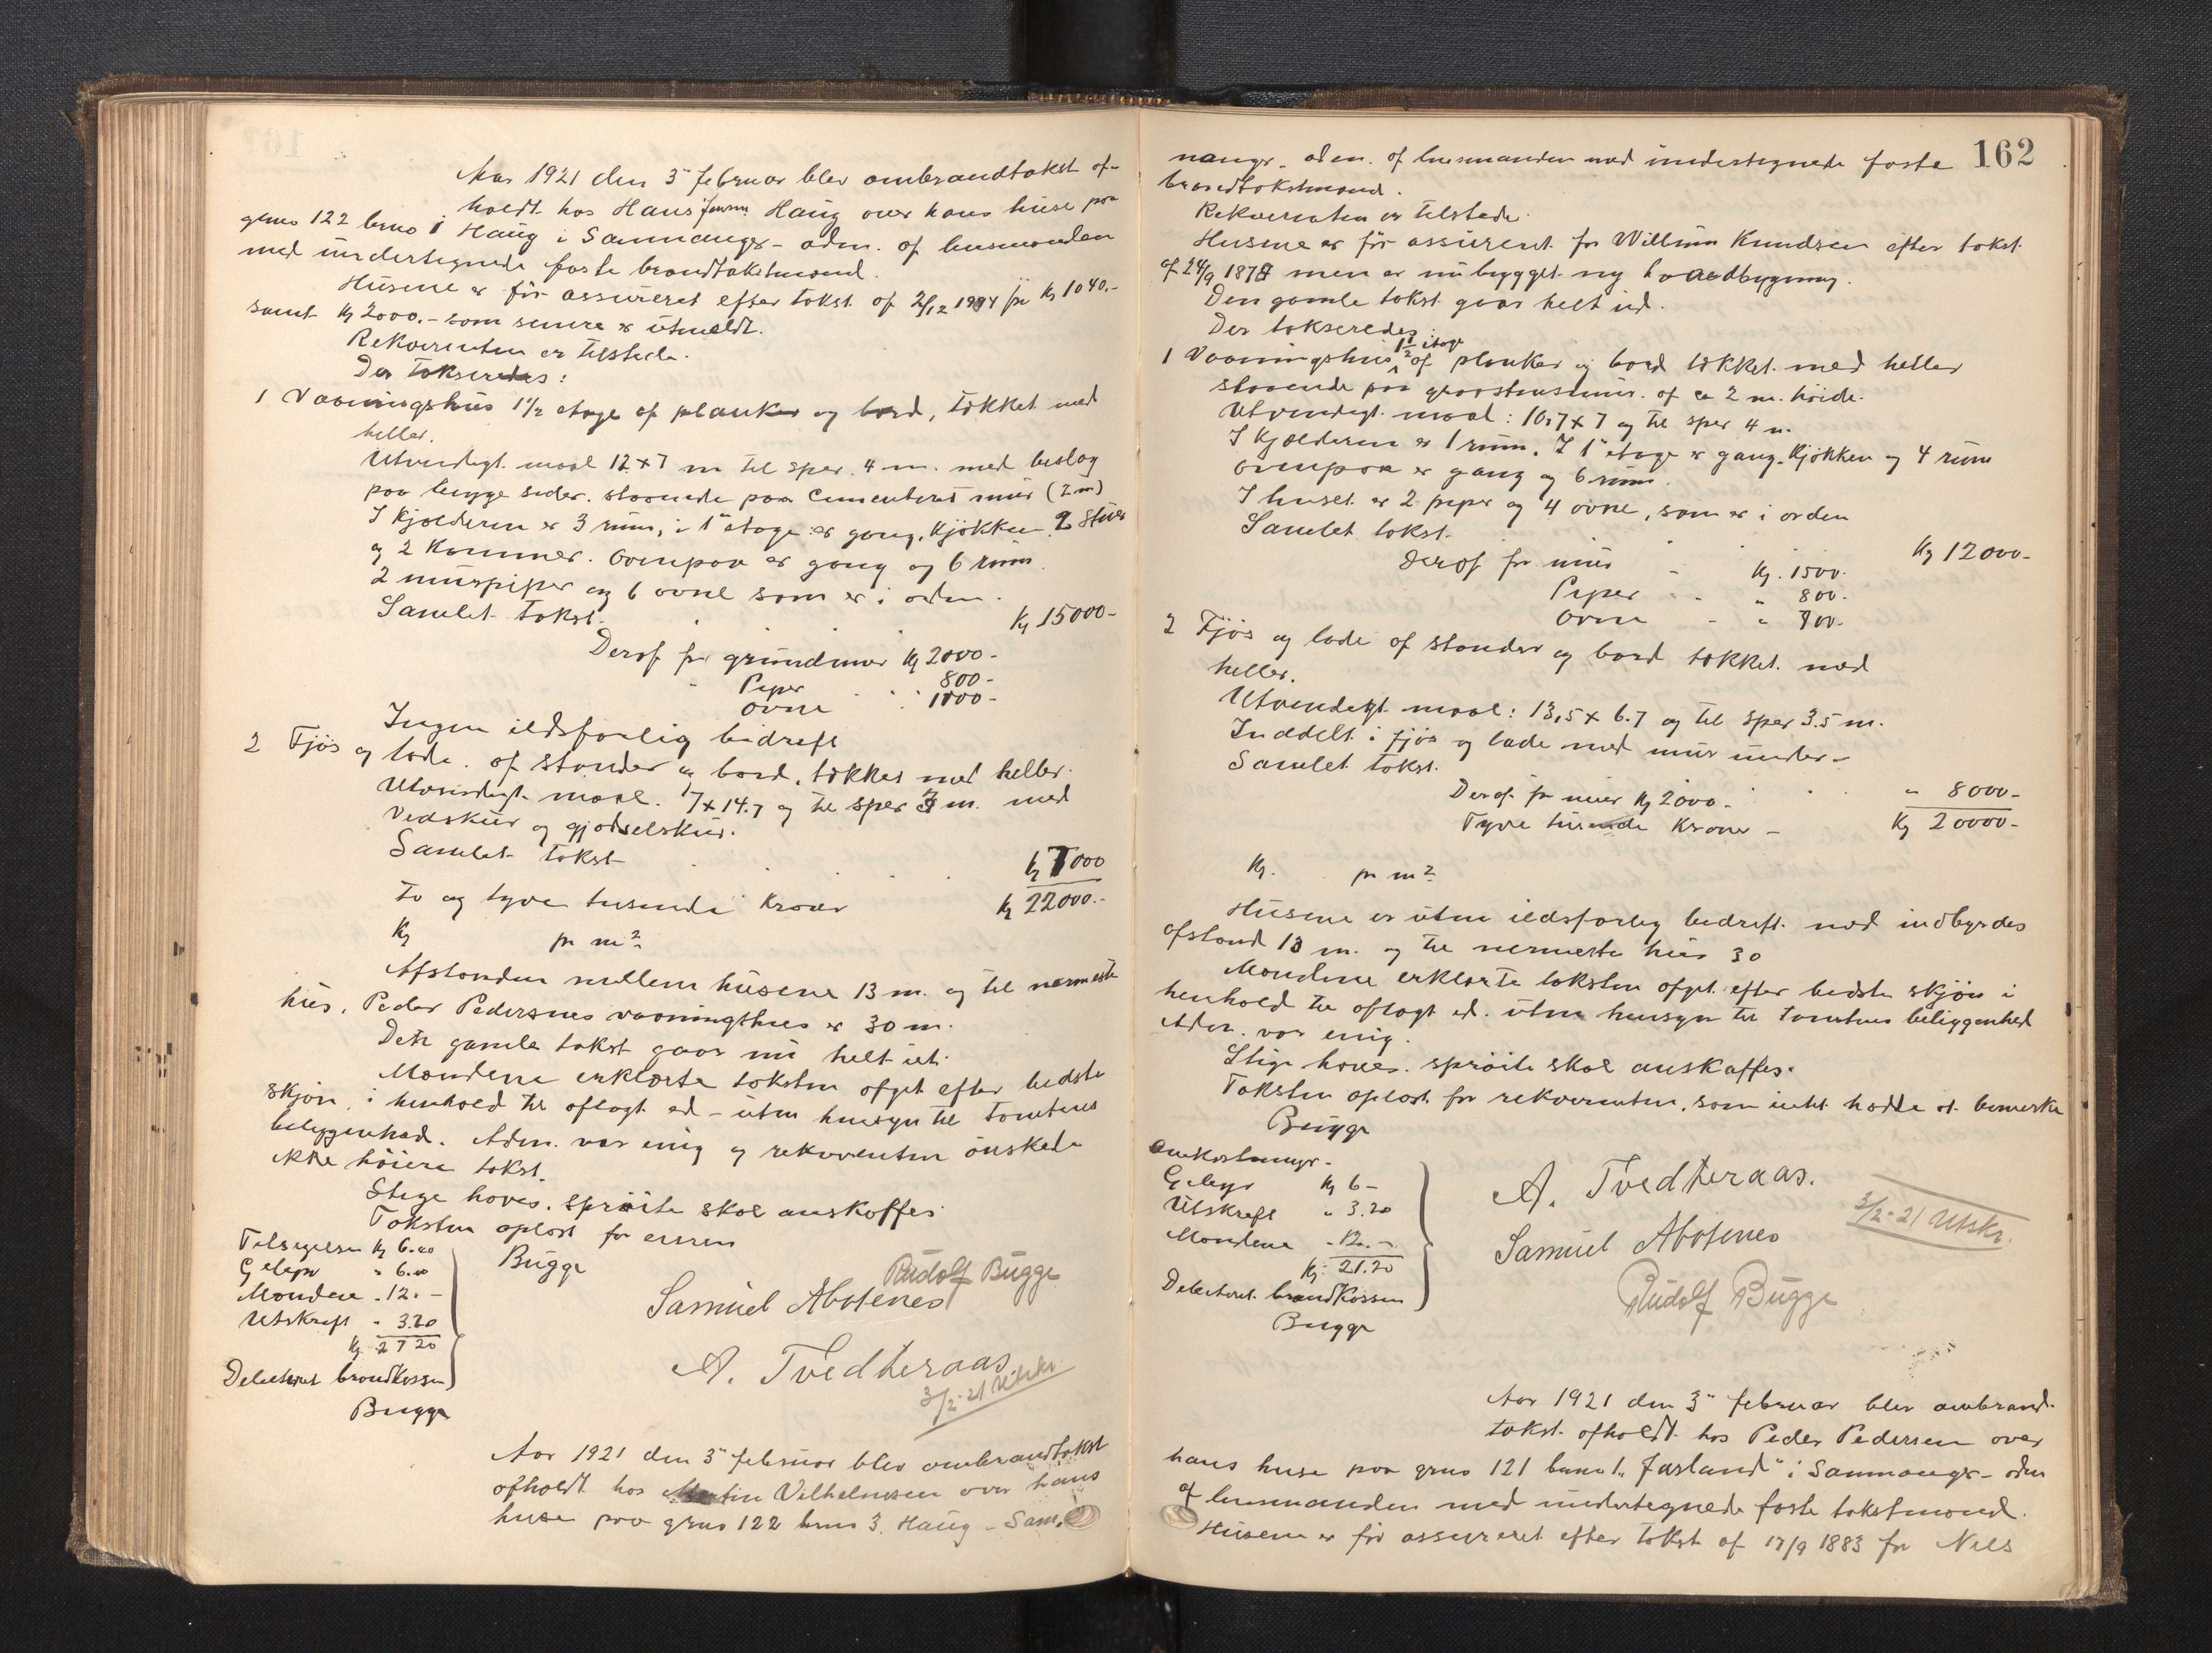 Aar 1921 den 3 februar blev ombrandtakst af-
holdt hos Hans Jensen Haug over hans huse paa
gnus 122 bruno 1 Haug i Samnanger - adm. af lensmanden
med undertegnede faste brandtakstmænd.
Husene er før assureret efter takst af 2/12 1894 for Kr 1040.-
samt Kr 2000.- som senere er utmeldt.
Rekvirenten er tilstede.
Der takseredes:
1 Vaaningshus 1 1/2 etage af planker og bord, tækket med
heller.
Utvendigt maal 12 x 7 m til sper 4 m. med beslag
paa begge sider. staaende paa cementeret mur (2 m)
I kjælderen er 3 rum, i 1' etage er gang, kjøkken, 2 stuer
og 2 kammer. Ovenpaa er gang og 6 rum.
2 murpiper og 6 ovne som er i orden.
Samlet takst. Kr 15000-
Deraf for grundmur Kr 2000-
Piper 800-
ovne 1000-
Ingen ildsfarlig bedrift
2 Fjøs og lade af stander og bord, tækket med heller.
Utvendigt maal. 7 x 14.7 og til sper m. med
Vedskur og gjødselskur.
Samlet takst Kr 7000
To og tyve tusende Kroner Kr 22000.-
Kr pr m2
Afstanden mellem husene 13 m. og til nærmeste
hus, Peder Pedersens vaaningshus er 30 m.
Den gamle takst gaar nu helt ut.
Mændene erklærte taksten afgit efter bedste
skjøn, i henhold til aflagt ed - uten hensyn til Tomtens
beliggenhed. Adm. var enig og rekvirenten ønskede
ikke høiere takst.
Stige haves, sprøite skal anskaffes
Taksten oplæst for eieren
Tilsigelsen Kr 6.00
Gebyr " 6.00
Mændene " 12.-
Utskrift " 3.20
Kr 27 20
Debiteret brandkassen
Bugge
Bugge
Rudolf Bugge
Samuel Abotsnes
A. Tvedteraas.
3/2-21 Utskr
Aar 1921 den 3" februar blev ombrandtakst
afholdt hos Martin Vilhelmsen over hans
huse paa gnus 122 bruno 3. Haug - Sam-
162
nanger - adm. af lensmanden med undertegnede faste
brandtakstmænd.
Rekvirenten er tilstede.
Husene er før assureret for Willum Knudsen efter takst
af 24/9 1878 men er nu bygget ny hovedbygning.
Den gamle takst gaar helt ud.
Der takseredes:
1 Vaaningshus 1 1/2 etage af planker og bord tækket med heller
staaende paa graastensmur af ca 2 m. høide.
Utvendigt maal: 10,7 x 7 og til sper 4 m.
I kjælderen er 1 rum. I 1' etage er gang, kjøkken og 4 rum
ovenpaa er gang og 6 rum.
I huset er 2 piper og 4 ovne, som er i orden
Samlet takst. Kr 12000-
Deraf for mur Kr. 1500-
Piper " 800-
ovne " 700-
2 Fjøs og lade af stander og bord tækket med
heller.
Utvendigt maal: 13,5 x 6.7 og til sper 3.5 m.
Inddelt i fjøs og lade med mur under-
Samlet takst. " 8000-
Deraf for mur Kr 2000-
Tyve tusende Kroner - Kr 20000-
Kr. pr m2
Husene er uten ildsfarlig bedrift med indbyrdes
afstand 13 m. og til nermeste hus 30
Mændene erklærte taksten afgit efter bedste skjøn i
henhold til aflagt ed. uten hensyn til Tomtens beliggenhed
Adm. var enig.
Stige haves. sprøite skal anskaffes.
Taksten oplæst for rekvirenten, som intet hadde at bemerke
Bugge
Omkostninger.
Gebyr Kr 6-
Utskrift " 3.20
Mændene " 12.-
Kr. 21.20
Debiteret brandkassen
Bugge
A. Tvedteraas.
Samuel Abotsnes
Rudolf Bugge
3/2-21 Utskr.
Aar 1921 den 3" februar blev ombrand-
takst afholdt hos Peder Pedersen over
hans huse paa gnus 121 bruno 1. "Jarland" i Samnanger - adm
af lensmanden med undertegnede faste takstmænd.
Husene er før assureret efter takst af 17/9 1883 for Nils